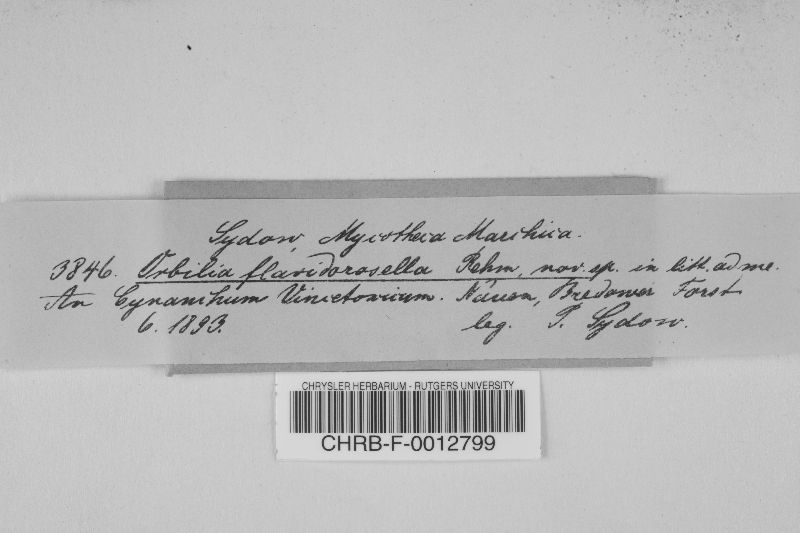 Sydow, Mycotheca Marchica.
3846. Orbilia flavidorosella Rehm, nov. sp. in litt. ad me.
An Cynanchum Vincetoxicum. Nauen, Bredower Forst
6. 1893. leg. P. Sydow.
CHRYSLER HERBARIUM - RUTGERS UNIVERSITY
CHRB-F-0012799